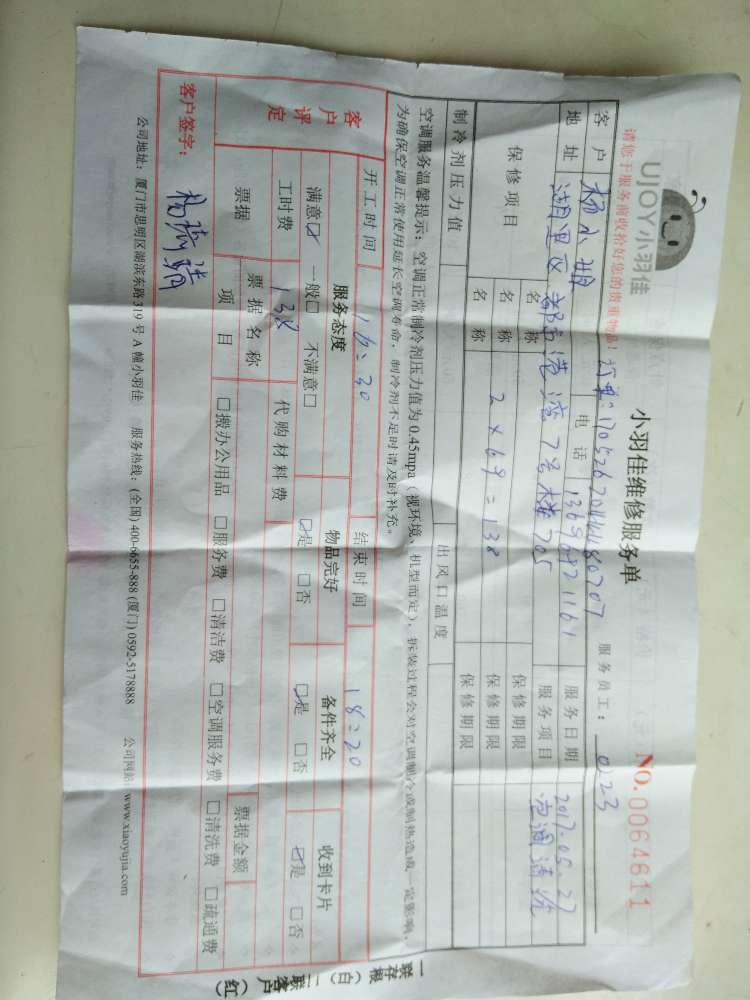 UJOY小羽佳
小羽佳维修服务单
NO.0064611
请您于服务前收拾好您的贵重物品!
服务员工: 0123
客户 杨小姐 电话 13690821161 服务日期 2017.05.27
地址 湖里区 7号楼705 服务项目 空调清洗
保修项目 名称 保修期限
名称 2×69=138 保修期限
名称 保修期限
制冷剂压力值 出风口温度
空调服务温馨提示:空调正常制冷剂压力值为0.45mpa(视环境、机型而定),拆装过程会对空调制冷或制热造成一定影响,
为确保空调正常使用延长空调寿命,制冷剂不足时请及时补充。
开工时间 16:30 结束时间 18:20
客户评定 服务态度 物品完好 备件齐全 收到卡片
满意☑ 一般□ 不满意□ ☑是 □否 ☑是 □否 ☑是 □否
工时费 138 代购材料费
票据 票据名称 票据金额
项目 □搬办公用品 □服务费 □清洁费 □空调服务费 □清洗费 □疏通费
客户签字:
公司地址:厦门市思明区湖滨东路319号A幢小羽佳 服务热线:(全国)400-6655-888 (厦门)0592-5178888 公司网站:www.xiaoyujia.com
一联存根(白) 二联客户(红)